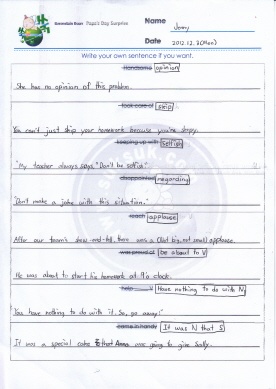 Germination Exam Papa's Day Surprise
Name Jenny
Date 2012.12.3(Mon)
Write your own sentence if you want.
handsome opinion
She has no opinion of this problem.
took care of skip
You can't just skip your homework because you're sleepy.
keeping up with selfish
"My teacher always says, "Don't be selfish."
disappointed regarding
"Don't make a joke with this situation."
reach applause
After our team's show-and-tell, there was a big, not small applause.
was proud of be about to V
He was about to start his homework at 9 o'clock.
Have nothing to do with N
"You have nothing to do with it. So, go away!"
came in handy It was N that S
It was a special cake that Anna was going to give Sally.